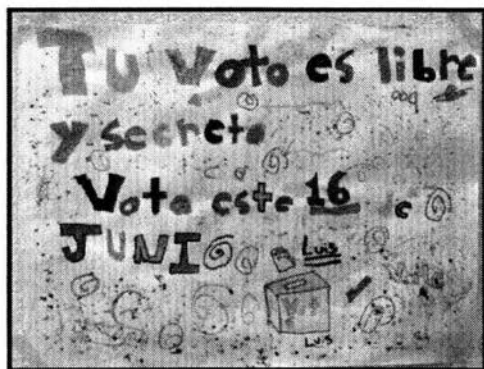 Tu Voto es libre
y secreto
Vota este 16 e
JUNIO
Luis
Luis